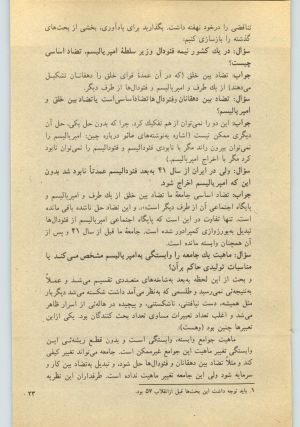 تناقضی را درخود نهفته داشت. بگذارید برای یادآوری، بخشی از بحث‌های
گذشته را بازسازی کنیم:
سؤال: در یك کشور نیمه فئودال و زیر سلطهٔ امپریالیسم، تضاد اساسی
چیست؟
جواب: تضاد بین خلق (که در آن عمدهٔ قوای خلق را دهقانان تشکیل
می‌دهند) از یك طرف و امپریالیسم و فئودال‌ها از طرف دیگر.
سؤال: تضاد بین دهقانان وفئودال‌ها تضاداساسی‌است یا تضاد بین خلق و
امپریالیسم؟
جواب: این دو را نمی‌توان از هم تفکیك کرد. چرا که بدون حل یکی، حل آن
دیگری ممکن نیست (اشاره به‌نوشته‌های مائو درباره چین): امپریالیسم را
نمی‌توان بیرون راند مگر با نابودی فئودالیسم و فئودالیسم را نمی‌توان نابود
کرد مگر با اخراج امپریالیسم.)
سؤال: ولی در ایران از سال ۴۱ به‌بعد فئودالیسم عمدتاً نابود شد بدون
این که امپریالیسم اخراج شود.
جواب: تضاد اساسی جامعهٔ ما تضاد بین خلق از یك طرف و امپریالیسم و
فئودال‌ها از طرف دیگر است، و این تضاد حل ناشده باقی مانده
است. تنها تفاوت در این است که پایگاه اجتماعی امپریالیسم از فئودال‌ها
تبدیل به‌بورژوازی کمپرادور شده است. جامعهٔ ما قبل از سال ۴۱ و پس از
آن همچنان وابسته مانده است.
سؤال: ماهیت یك جامعه را وابستگی به‌امپریالیسم مشخص می‌کند یا
مناسبات تولیدی حاکم برآن؟
و بحث از این لحظه به‌بعد به‌شاخه‌های متعددی تقسیم می‌شد و عملاً
به‌نتیجه‌ئی نمی‌رسید و طلسمی که به‌نظر می‌آمد داشت شکسته می‌شد دیگر بار
مثل همیشه، دست نیافتنی، ناشکستنی، و پیچیده در هاله‌ئی از اسرار ظاهر
می‌شد و اغلب تعداد تعبیرات مساوی تعداد بحث کنندگان بود. یکی ازاین
تعبیرها چنین بود (وهست):
ماهیت جوامع وابسته، وابستگی است و بدون قطع ریشه‌ئی این
وابستگی تغییر ماهیت این جوامع غیرممکن است. جامعه می‌تواند تغییر کیفی
کند و مثلاً تضاد بین دهقانان و فئودال‌ها حل شود، و تبدیل به‌تضاد بین کار و
سرمایه شود ولی این جامعه تغییر ماهیت نداده است. طرفداران این نظریه
۱. باید توجه داشت این بحث‌ها قبل ازانقلاب ۵۷ بود.
۲۳